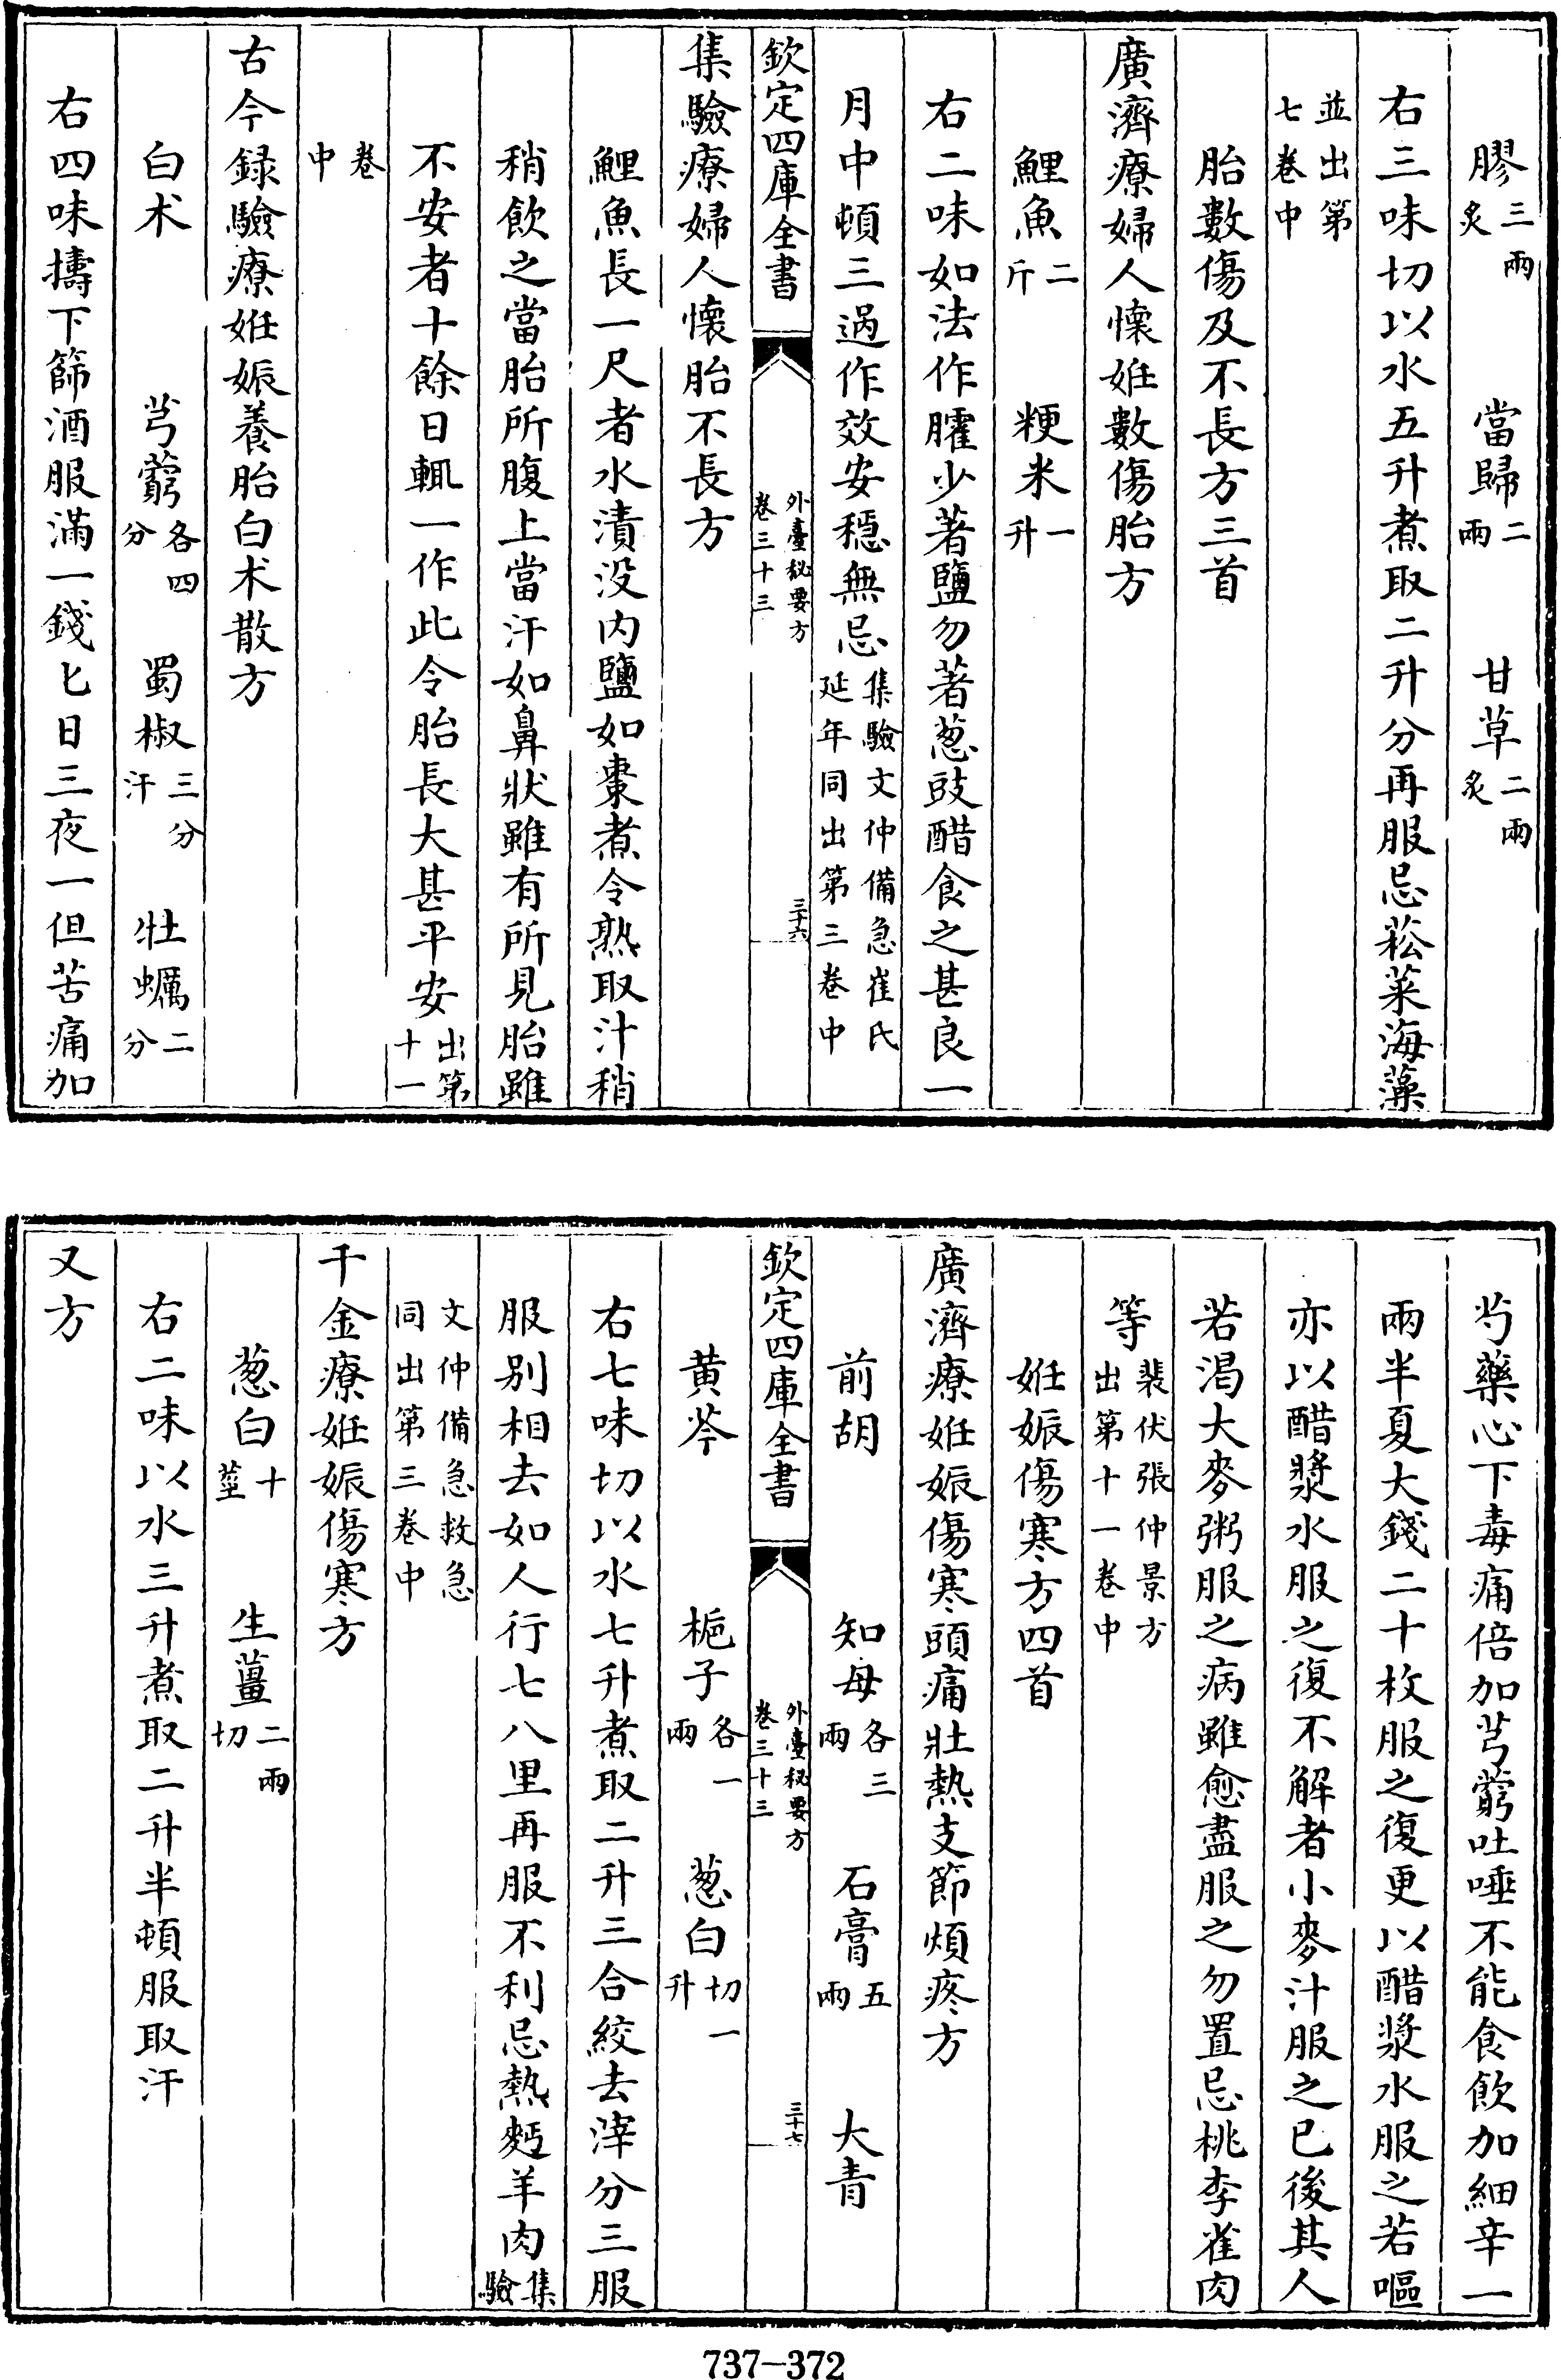 膠三兩炙　當歸二兩　甘草二兩炙
右三味切以水五升煮取二升分再服忌菘菜海藻
並出第七卷中
胎數傷及不長方三首
廣濟療婦人懷姙數傷胎方
鯉魚二斤　粳米一升
右二味如法作臛少著鹽勿著葱豉醋食之甚良一
月中頓三過作效安穩無忌集驗文仲備急崔氏延年同出第三卷中
欽定四庫全書　外臺秘要方卷三十三　三十六
集驗療婦人懷胎不長方
鯉魚長一尺者水漬没内鹽如棗煮令熟取汁稍
稍飲之當胎所腹上當汗如鼻狀雖有所見胎雖
不安者十餘日輒一作此令胎長大甚平安出第十一
卷中
古今録驗療姙娠養胎白术散方
白术　芎藭各四分　蜀椒三分汗　牡蠣二分
右四味擣下篩酒服滿一錢匕日三夜一但苦痛加
芍藥心下毒痛倍加芎藭吐唾不能食飲加細辛一
兩半夏大錢二十枚服之復更以醋漿水服之若嘔
亦以醋漿水服之復不解者小麥汁服之已後其人
若渴大麥粥服之病雖愈盡服之勿置忌桃李雀肉
等裴伏張仲景方出第十一卷中
姙娠傷寒方四首
廣濟療姙娠傷寒頭痛壯熱支節煩疼方
前胡　知母各三兩　石膏五兩　大青
欽定四庫全書　外臺秘要方卷三十三　三十七
黄芩　梔子各一兩　葱白切一升
右七味切以水七升煮取二升三合絞去滓分三服
服别相去如人行七八里再服不利忌熱麫羊肉集驗
文仲備急救急同出第三卷中
千金療姙娠傷寒方
葱白十莖　生薑二兩切
右二味以水三升煮取二升半頓服取汗
又方
737-372